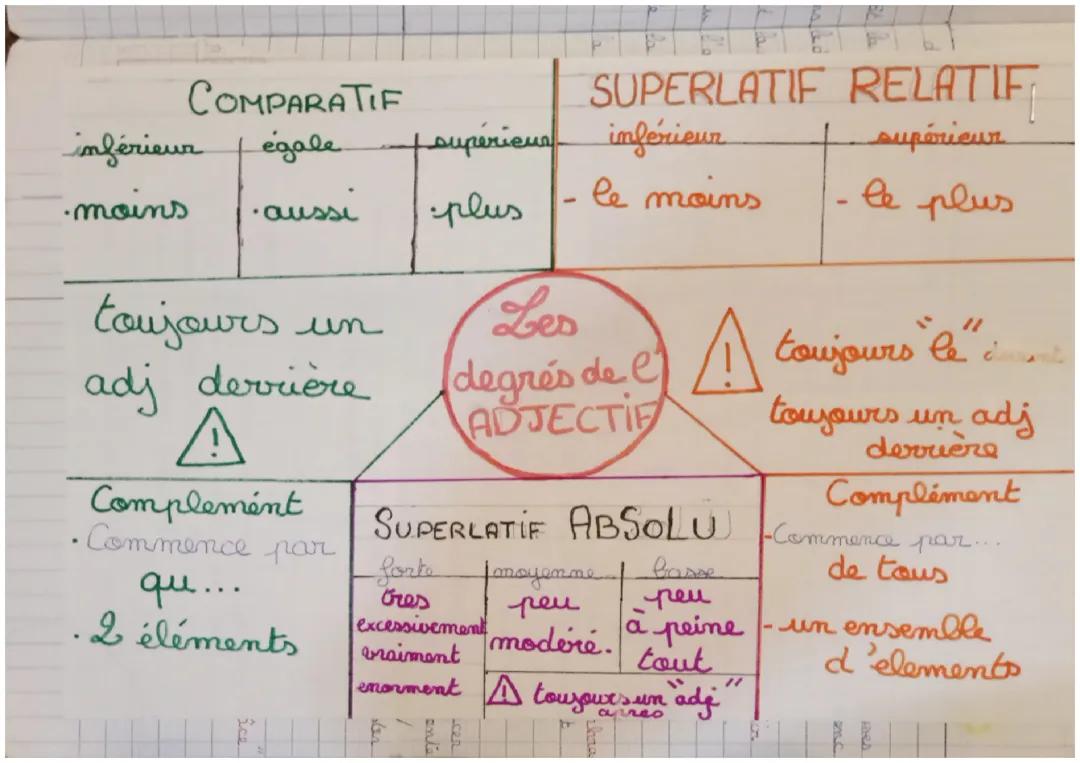 COMPARATIF
inférieur égale supérieur
·moins ·aussi ·plus
toujours un
adj derrière
!
Complemént
·Commence par
qu...
·2 éléments
SUPERLATIF RELATIF
inférieur supérieur
- le moins - le plus
! toujours "le" devant
toujours un adj
derrière
Complément
-Commence par...
de tous
-un ensemble
d'elements
Les
degrés de l'
ADJECTIF
SUPERLATIF ABSOLU
forte moyenne basse
tres peu peu
excessivement modéré. à peine
vraiment tout
enorment
! toujours un "adj"
apres